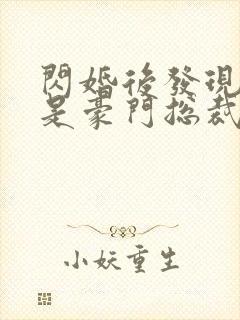 閃婚後發現
是豪門總裁
小妖重生